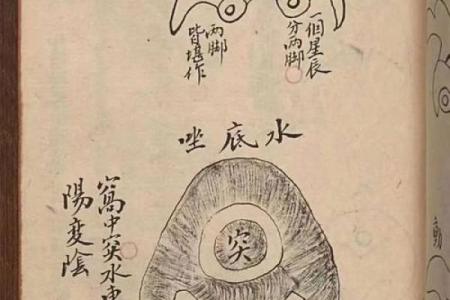 一個星辰
分兩脚
兩脚
皆堪作
水底坐
突
窩中突水
陽变陰
動